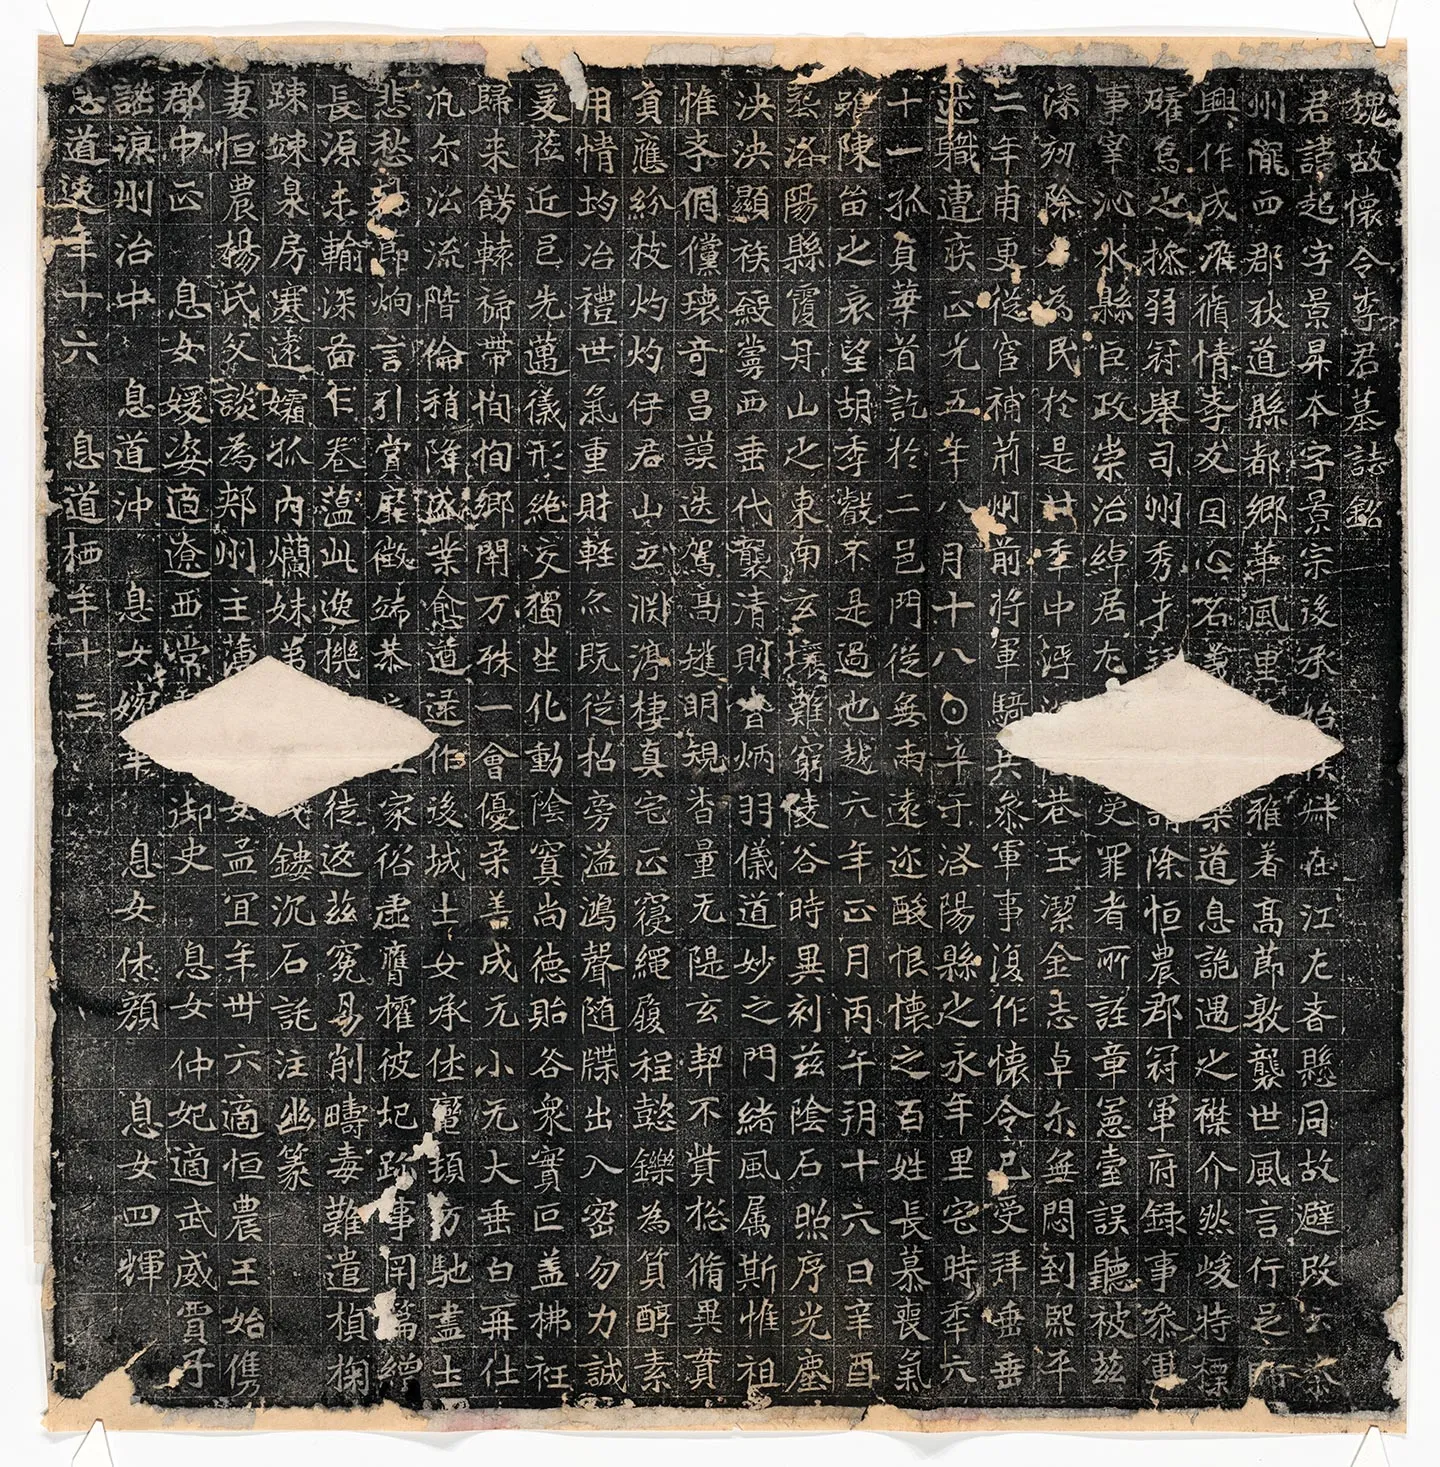 魏故懷令李君墓誌銘
君諱超字景昇本字景宗後承始族婦在江左者懸同故避改云秦
州隴西郡狄道縣都鄉華風里雅著高節敦襲世風言行足師
興作成准脩情孝友因心名道息詭遇之襟介然峻特標
曜為之操弱冠舉司州秀才除恒農郡冠軍府録事參軍
事宰沁水縣巨政崇治綽居尤受罪者所誣章憲臺誤聽被茲
深劾除名為民於是廿季中浮巷玉潔金志卓尔無悶到熙平
二年甫更從宦補荊州前將軍騎兵參軍事復作懷令已受拜垂垂
述職遭疾正光五年八月十八日辛于洛陽縣之永年里宅時季六
十一孤貞華首訖於二邑門從無甬遠迩酸恨懷之百姓長慕喪氣
雖陳笛之哀望胡季巖不是過也越六年正月丙午朔十六日辛酉
塟洛陽縣覆舟山之東南玄壤難窮陵谷時異刻茲陰石照序光塵
泱泱顯族綴賞西垂代襲清則炳羽儀道妙之門緒風属斯惟祖
惟孝倜儻瓌奇昌謨迭駕高雄明規杳量无隄玄契不貲悐脩異蕡
貪應紛枝灼灼伊君山立渊渟棲真宅正寢繩履程懿鑠為質醇素
用情均冶禮世氣重財輊尒既從招旁溢鴻聲随牒出入密勿力誠
爰莅近邑先邁儀形絶交獨坐化動陰寞尚德貽谷衆實叵盖梻衽
歸来餝轅褫帶恂恂鄉閈万殊一會優柔善成无小无大垂白再仕
汎尔㳂流階倫稍降盛業愈遒遠作後城士女承伥鑾頓訪馳盡士
悲愁節炯言引賞歷徽端恭家俗虚膺權彼圯跡事罔篇繒
長源未輸深啚乍卷藴此逸機徒返茲寃易削疇毒難遣楨掬
踈竦泉房寒遠孀孤内爛妹弟鏤沉石託注幽篆
妻恒農楊氏父談為郟州主薄女孟宜年卅六適恒農王始儁
郡中正息女媛姿適遼西常御史息女仲妃適武威賈子
謐涼州治中息道沖息女婉年息女休顏息女四輝
息道逸年十六息道栖年十三